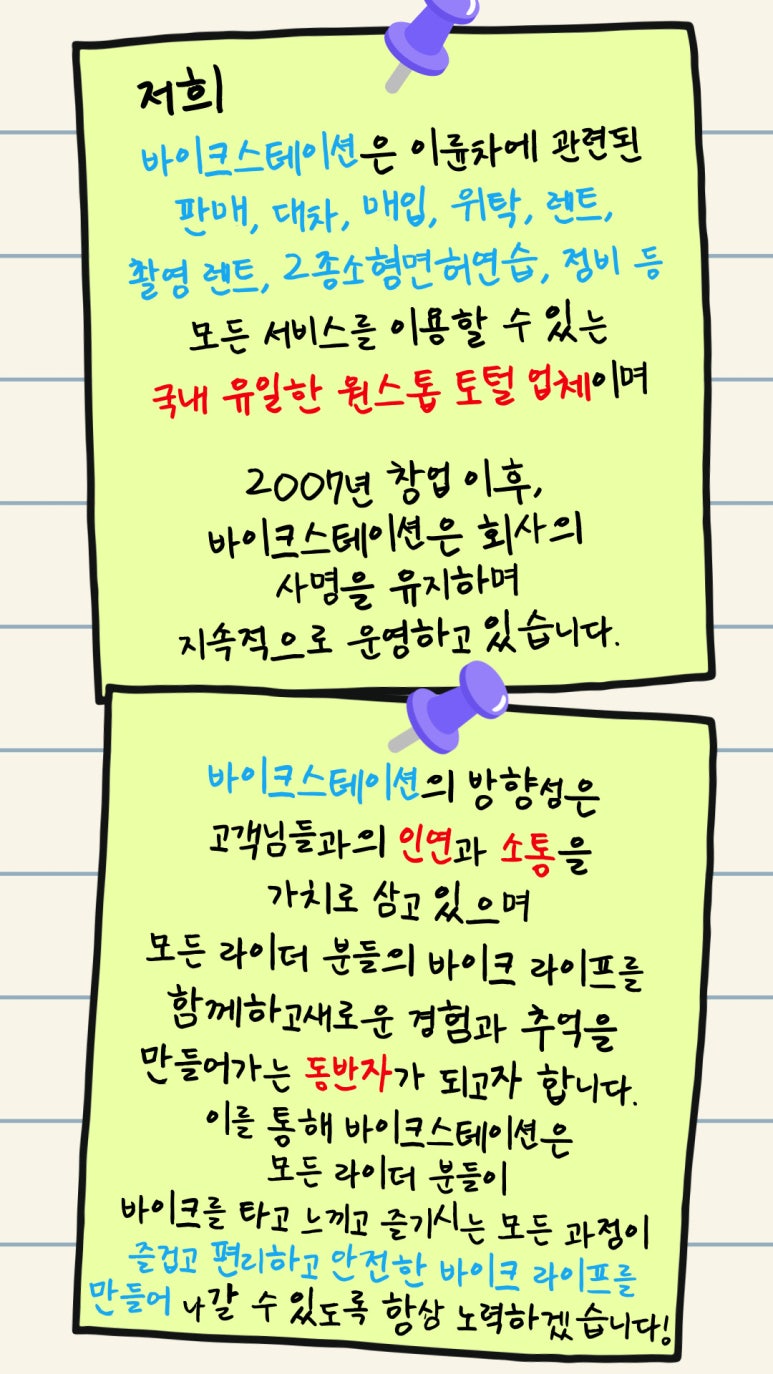 저희
바이크스테이션은 이륜차에 관련된
판매, 대차, 매입, 위탁, 렌트,
촬영 렌트, 2종소형면허연습, 정비 등
모든 서비스를 이용할 수 있는
국내 유일한 원스톱 토털 업체이며
2007년 창업 이후,
바이크스테이션은 회사의
사명을 유지하며
지속적으로 운영하고 있습니다.
바이크스테이션의 방향성은
고객님들과의 인연과 소통을
가치로 삼고 있으며
모든 라이더 분들의 바이크 라이프를
함께하고새로운 경험과 추억을
만들어가는 동반자가 되고자 합니다.
이를 통해 바이크스테이션은
모든 라이더 분들이
바이크를 타고 느끼고 즐기시는 모든 과정이
즐겁고 편리하고 안전한 바이크 라이프를
만들어 나갈 수 있도록 항상 노력하겠습니다!